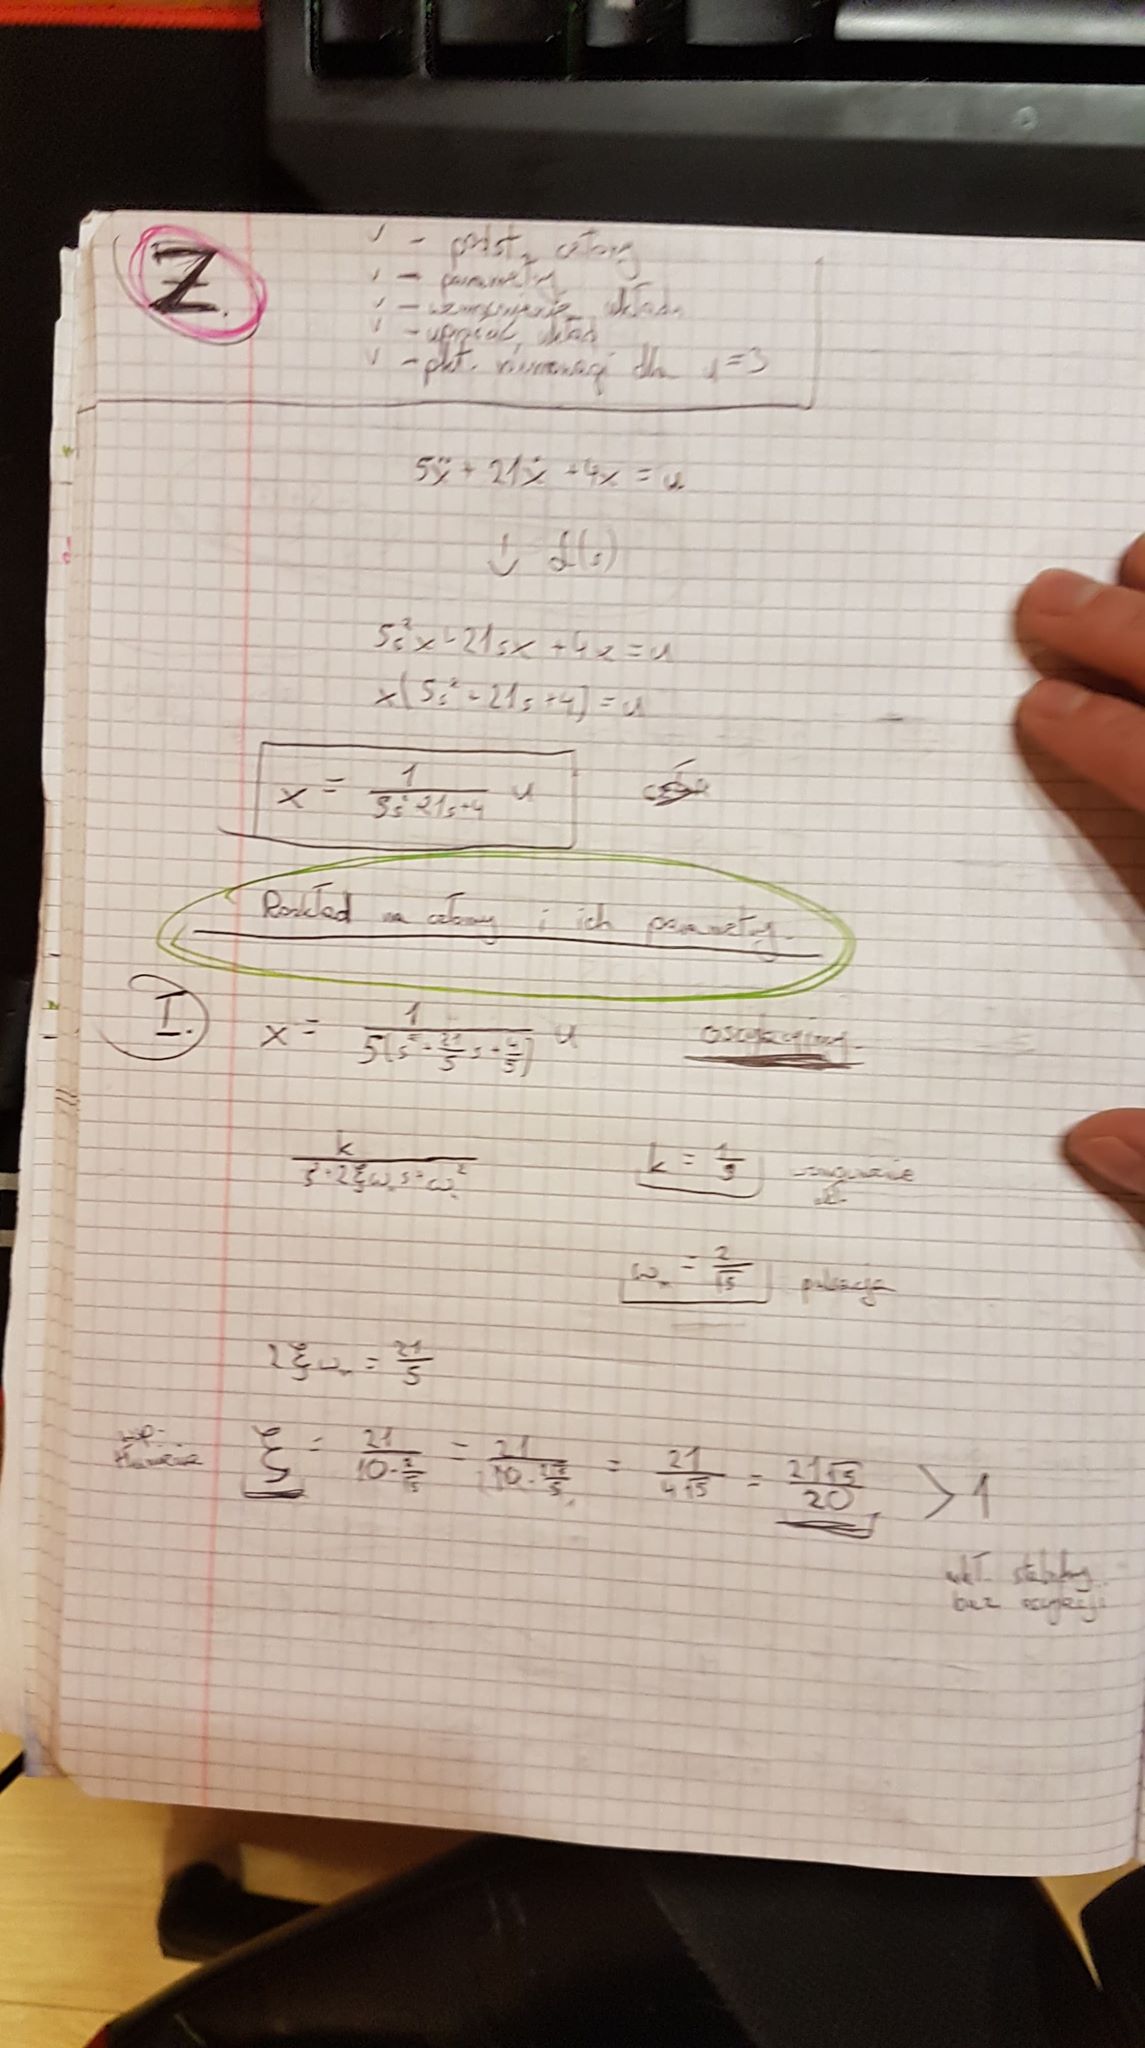 Z.
✓ - podst. człony
✓ - parametry
✓ - wzmocnienie układu
✓ - uprość układ
✓ - pkt. równowagi dla u=3
5ẍ + 21ẋ + 4x = u
↓ ℒ(s)
5s²x + 21sx + 4x = u
x[5s² + 21s + 4] = u
x = 1/(5s²+21s+4) u
Rozkład na człony i ich parametry.
I. x = 1/(5[s² + 21/5 s + 4/5]) u oscylacyjny.
k/(s²+2ξωₙs+ωₙ²) k = 1/5
ωₙ = 2/√5 pulsacja
2ξωₙ = 21/5
wsp. tłumienia ξ = 21/(10·2/√5) = 21/(10·2√5/5) = 21/(4√5) = 21√5/20 > 1
ukł. stabilny
bez oscylacji